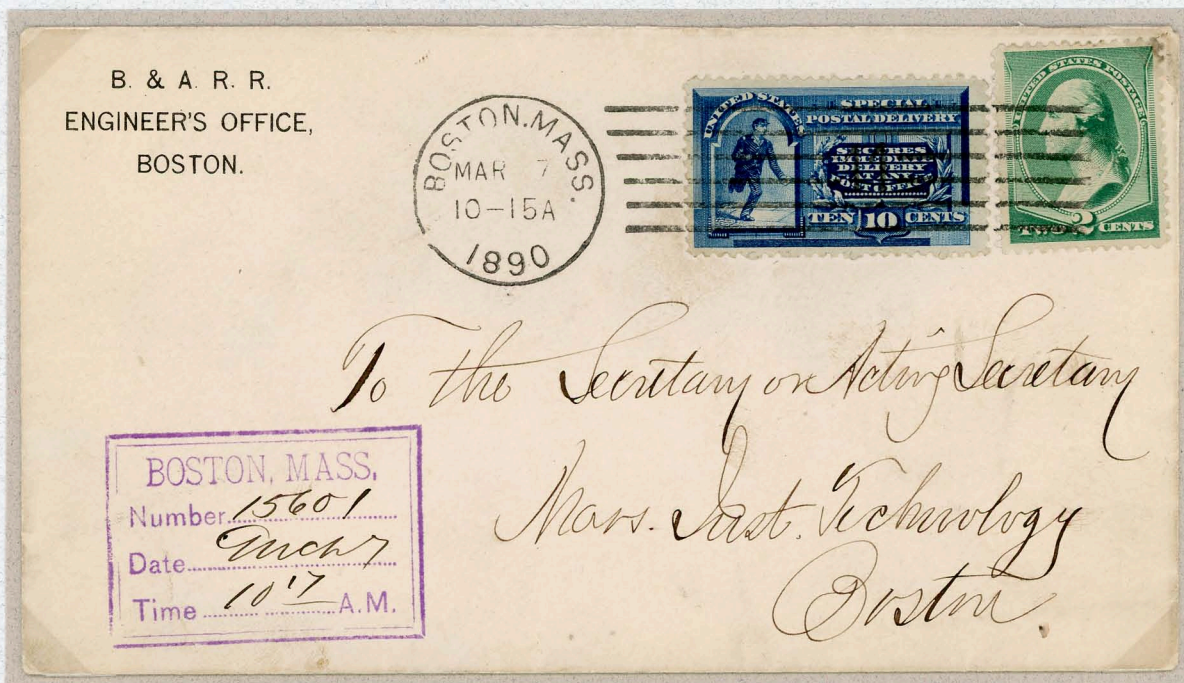 B. & A. R. R.
ENGINEER'S OFFICE,
BOSTON.
BOSTON, MASS.
MAR 7
10-15A
1890
UNITED STATES
SPECIAL
POSTAL DELIVERY
SECURES
IMMEDIATE
DELIVERY
AT ANY
POST OFFICE
TEN 10 CENTS
UNITED STATES POSTAGE
TWO 2 CENTS
To the Secretary or Acting Secretary
Mass. Inst. Technology
Boston
BOSTON, MASS.
Number 15601
Date March 7
Time 10 17 A.M.